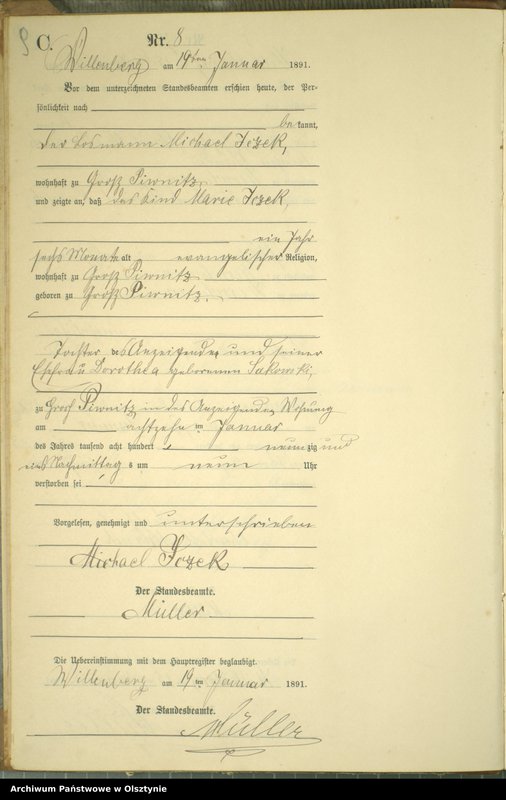 C.
Nr. 8
Willenberg am 19ten Januar 1891.
Vor dem unterzeichneten Standesbeamten erschien heute, der Per-
sönlichkeit nach
bekannt,
der Losmann Michael Jczek,
wohnhaft zu Groß Piwnitz
und zeigte an, daß das Kind Marie Jczek,
ein Jahr
sechs Monate alt evangelischer Religion,
wohnhaft zu Groß Piwnitz
geboren zu Groß Piwnitz,
Tochter des Anzeigenden und seiner
Ehefrau Dorothea geborenen Sakowski,
zu Groß Piwnitz in des Anzeigenden Wohnung
am achtzehnten Januar
des Jahres tausend acht hundert neunzig und
eins Nachmittags um neun Uhr
verstorben sei
Vorgelesen, genehmigt und unterschrieben
Michael Jczek
Der Standesbeamte.
Müller
Die Uebereinstimmung mit dem Hauptregister beglaubigt.
Willenberg am 19ten Januar 1891.
Der Standesbeamte.
Müller
Archiwum Państwowe w Olsztynie